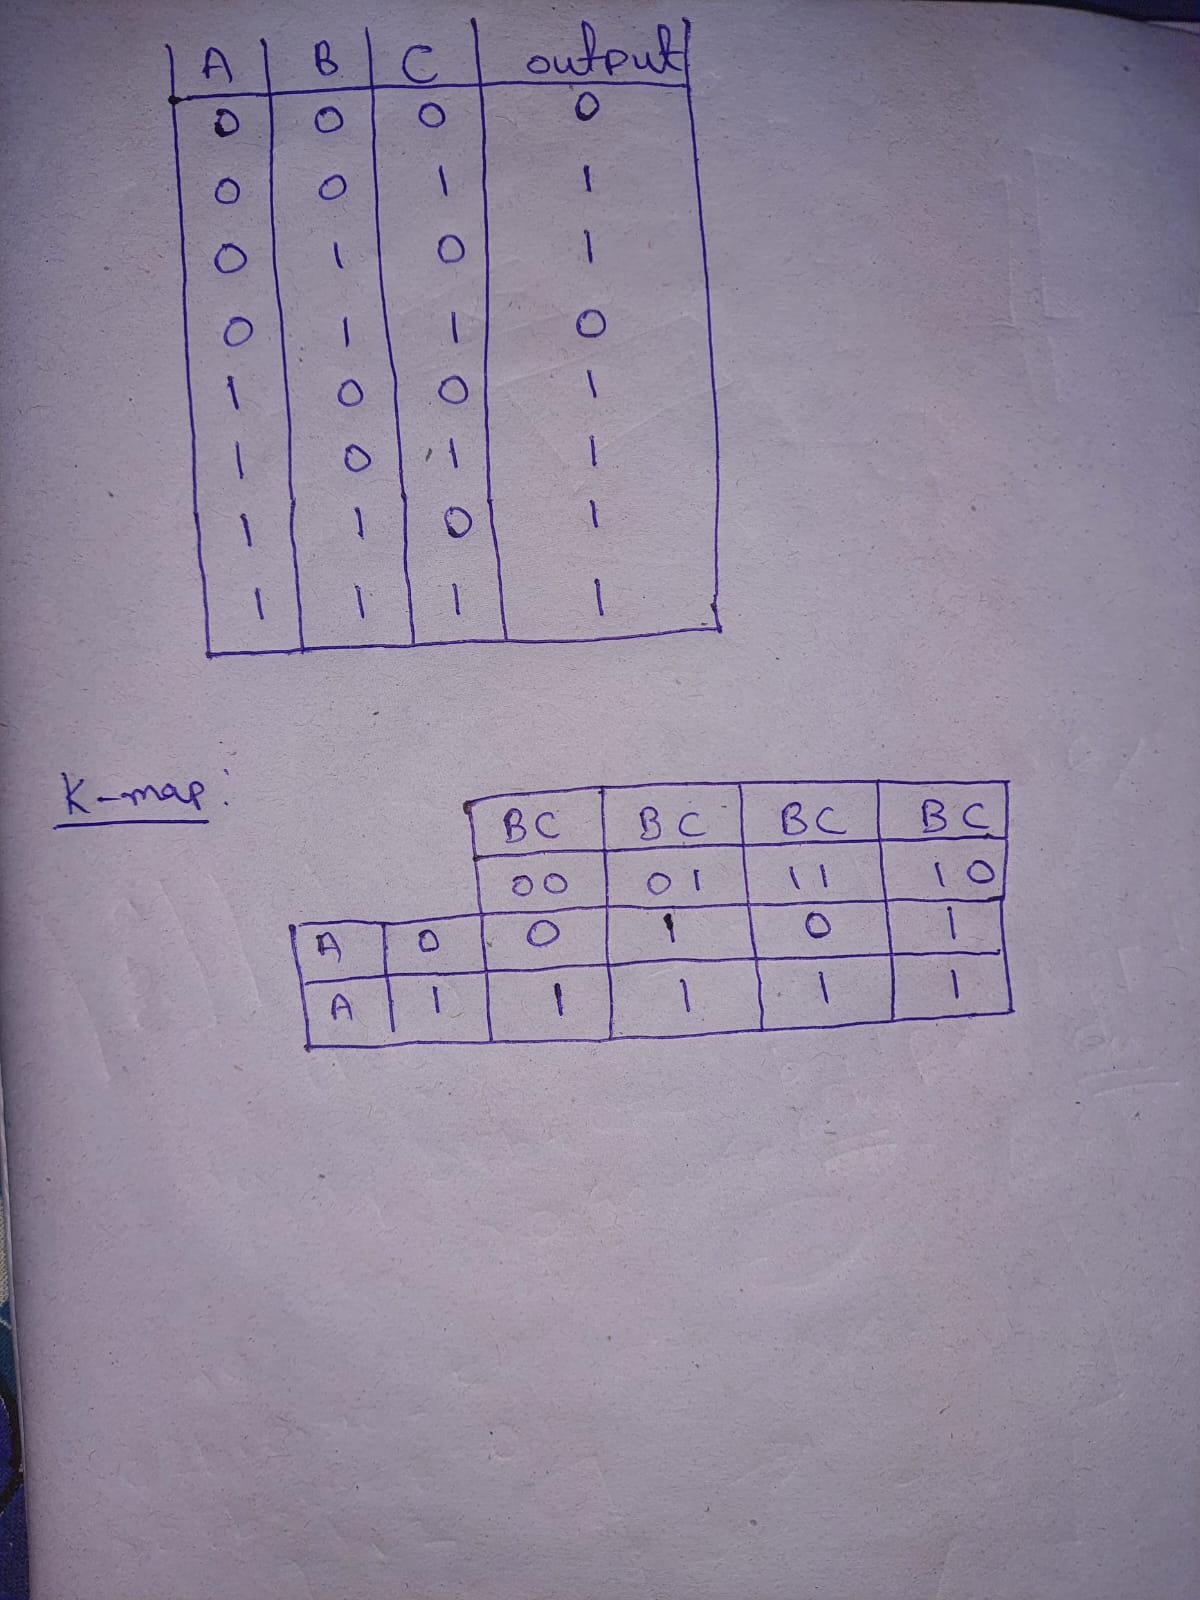 A B C output
0 0 0 0
0 0 1 1
0 1 0 1
0 1 1 0
1 0 0 1
1 0 1 1
1 1 0 1
1 1 1 1
K-map:
BC BC BC BC
00 01 11 10
A 0 0 1 0 1
A 1 1 1 1 1